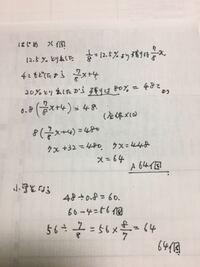 はじめ x個
12.5%とりました 1/8=12.5%より残りは7/8x.
4こもどしたから 7/8x+4
20%とりましたから残りは80%=48こ
0.8(7/8x+4)=48
8(7/8x+4)=480
7x+32=480. 7x=448
x=64
A 64個
48÷0.8=60.
60-4=56個
56÷7/8=56×8/7=64
64個